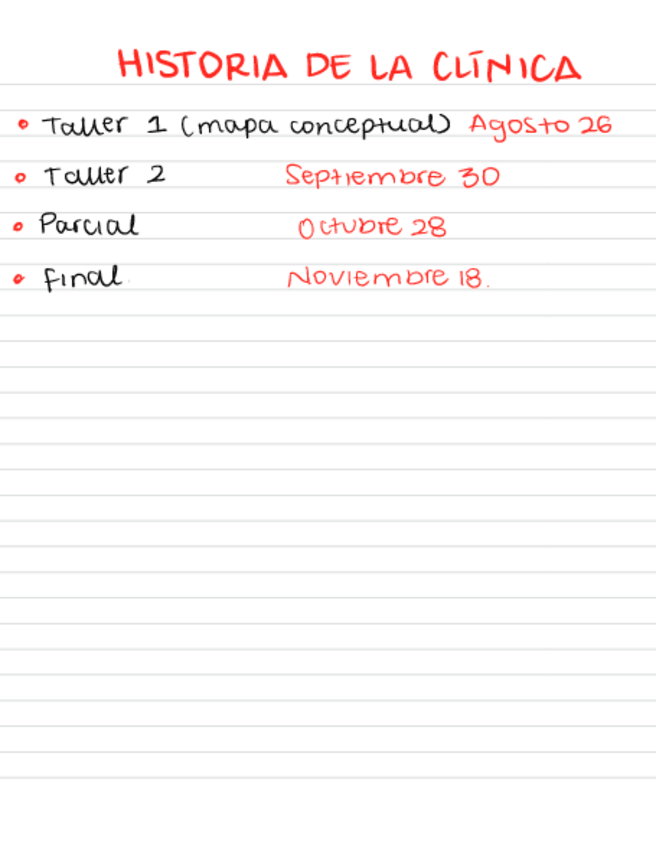 HISTORIA DE LA CLÍNICA
• Taller 1 (mapa conceptual) Agosto 26
• Taller 2 Septiembre 30
• Parcial Octubre 28
• final. Noviembre 18.